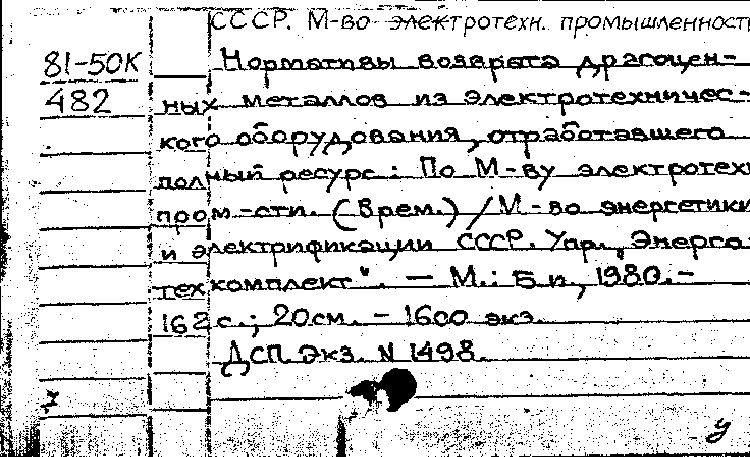 СССР. М-во электротехн. промышленност
81-50К
Нормативы возврата драгоцен-
482
ных металлов из электротехничес-
кого оборудования, отработавшего
полный ресурс: По М-ву электротехн
пром-сти. (Врем.) / М-во энергетики
и электрификации СССР. Упр. "Энерго-
техкомплект". — М.: Б и, 1980.-
162 с.; 20см. - 1600 экз.
ДСП. Экз. N 1498.
у